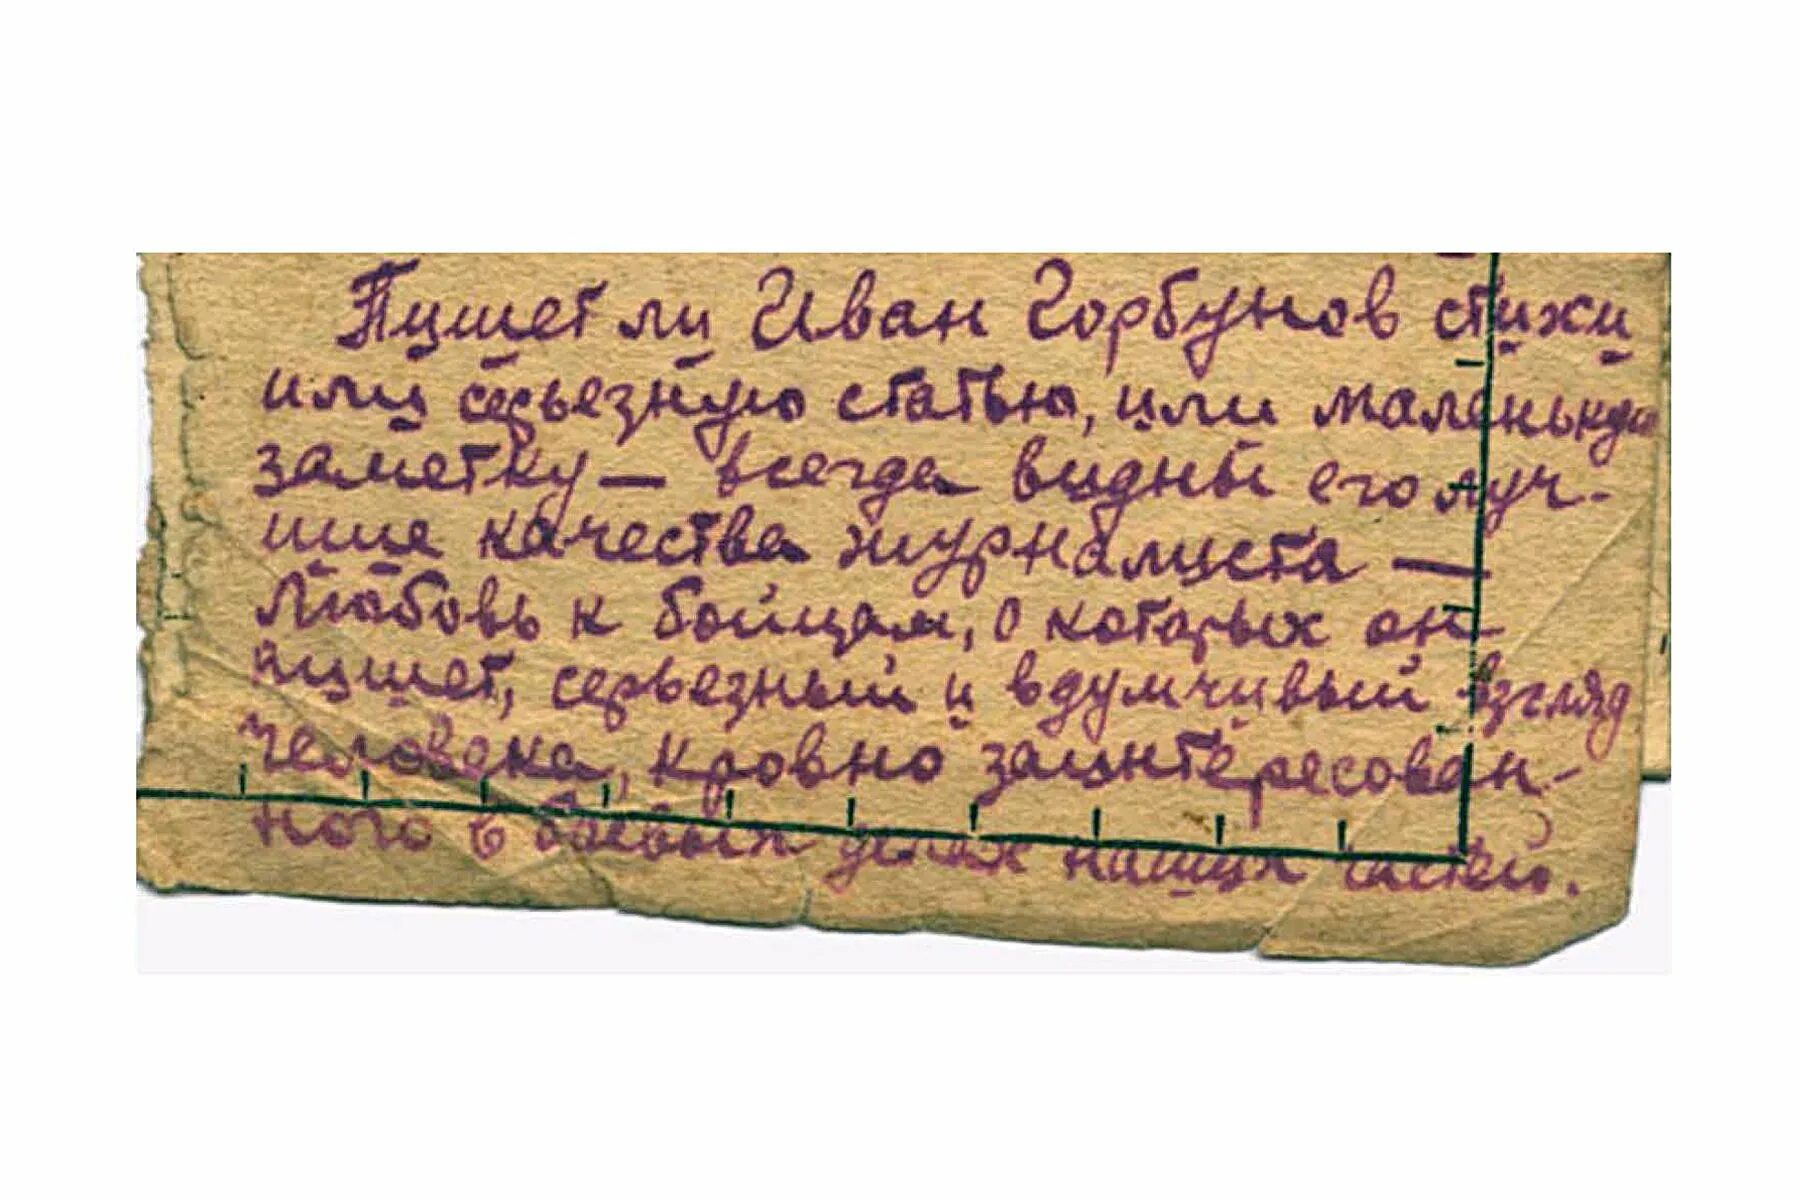 Пишет ли Иван Горбунов стихи
или серьезную статью, или маленькую
заметку — всегда видны его луч-
шие качества журналиста —
любовь к бойцам, о которых он
пишет, серьезный и вдумчивый взгляд
человека, кровно заинтересован-
ного в боевых делах наших частей.